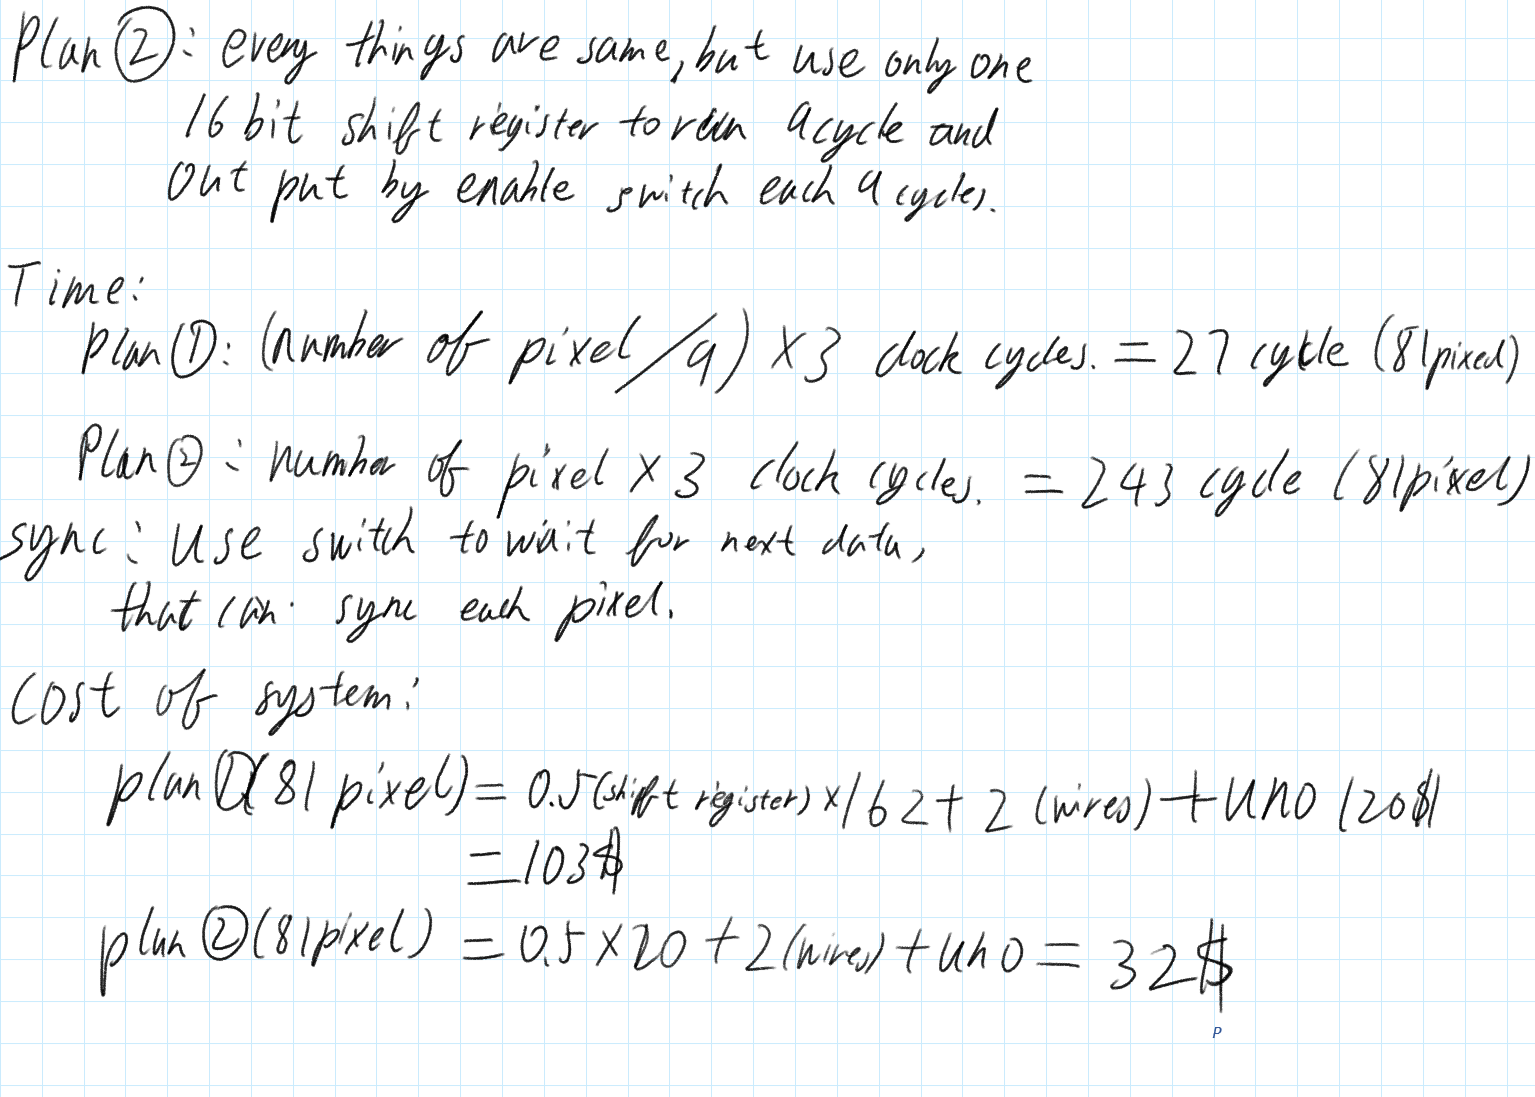 Plan ②: every things are same, but use only one
16 bit shift register to run 9 cycle and
out put by enable switch each 9 cycles.
Time:
plan ①: (number of pixel / 9) × 3 clock cycles. = 27 cycle (81 pixel)
Plan ②: number of pixel × 3 clock cycles. = 243 cycle (81 pixel)
sync: Use switch to wait for next data,
that can sync each pixel.
Cost of system:
plan ① (81 pixel) = 0.5 (shift register) × 162 + 2 (wires) + UNO (20$)
= 103$
plan ② (81 pixel) = 0.5 × 20 + 2 (wires) + uno = 32$
P